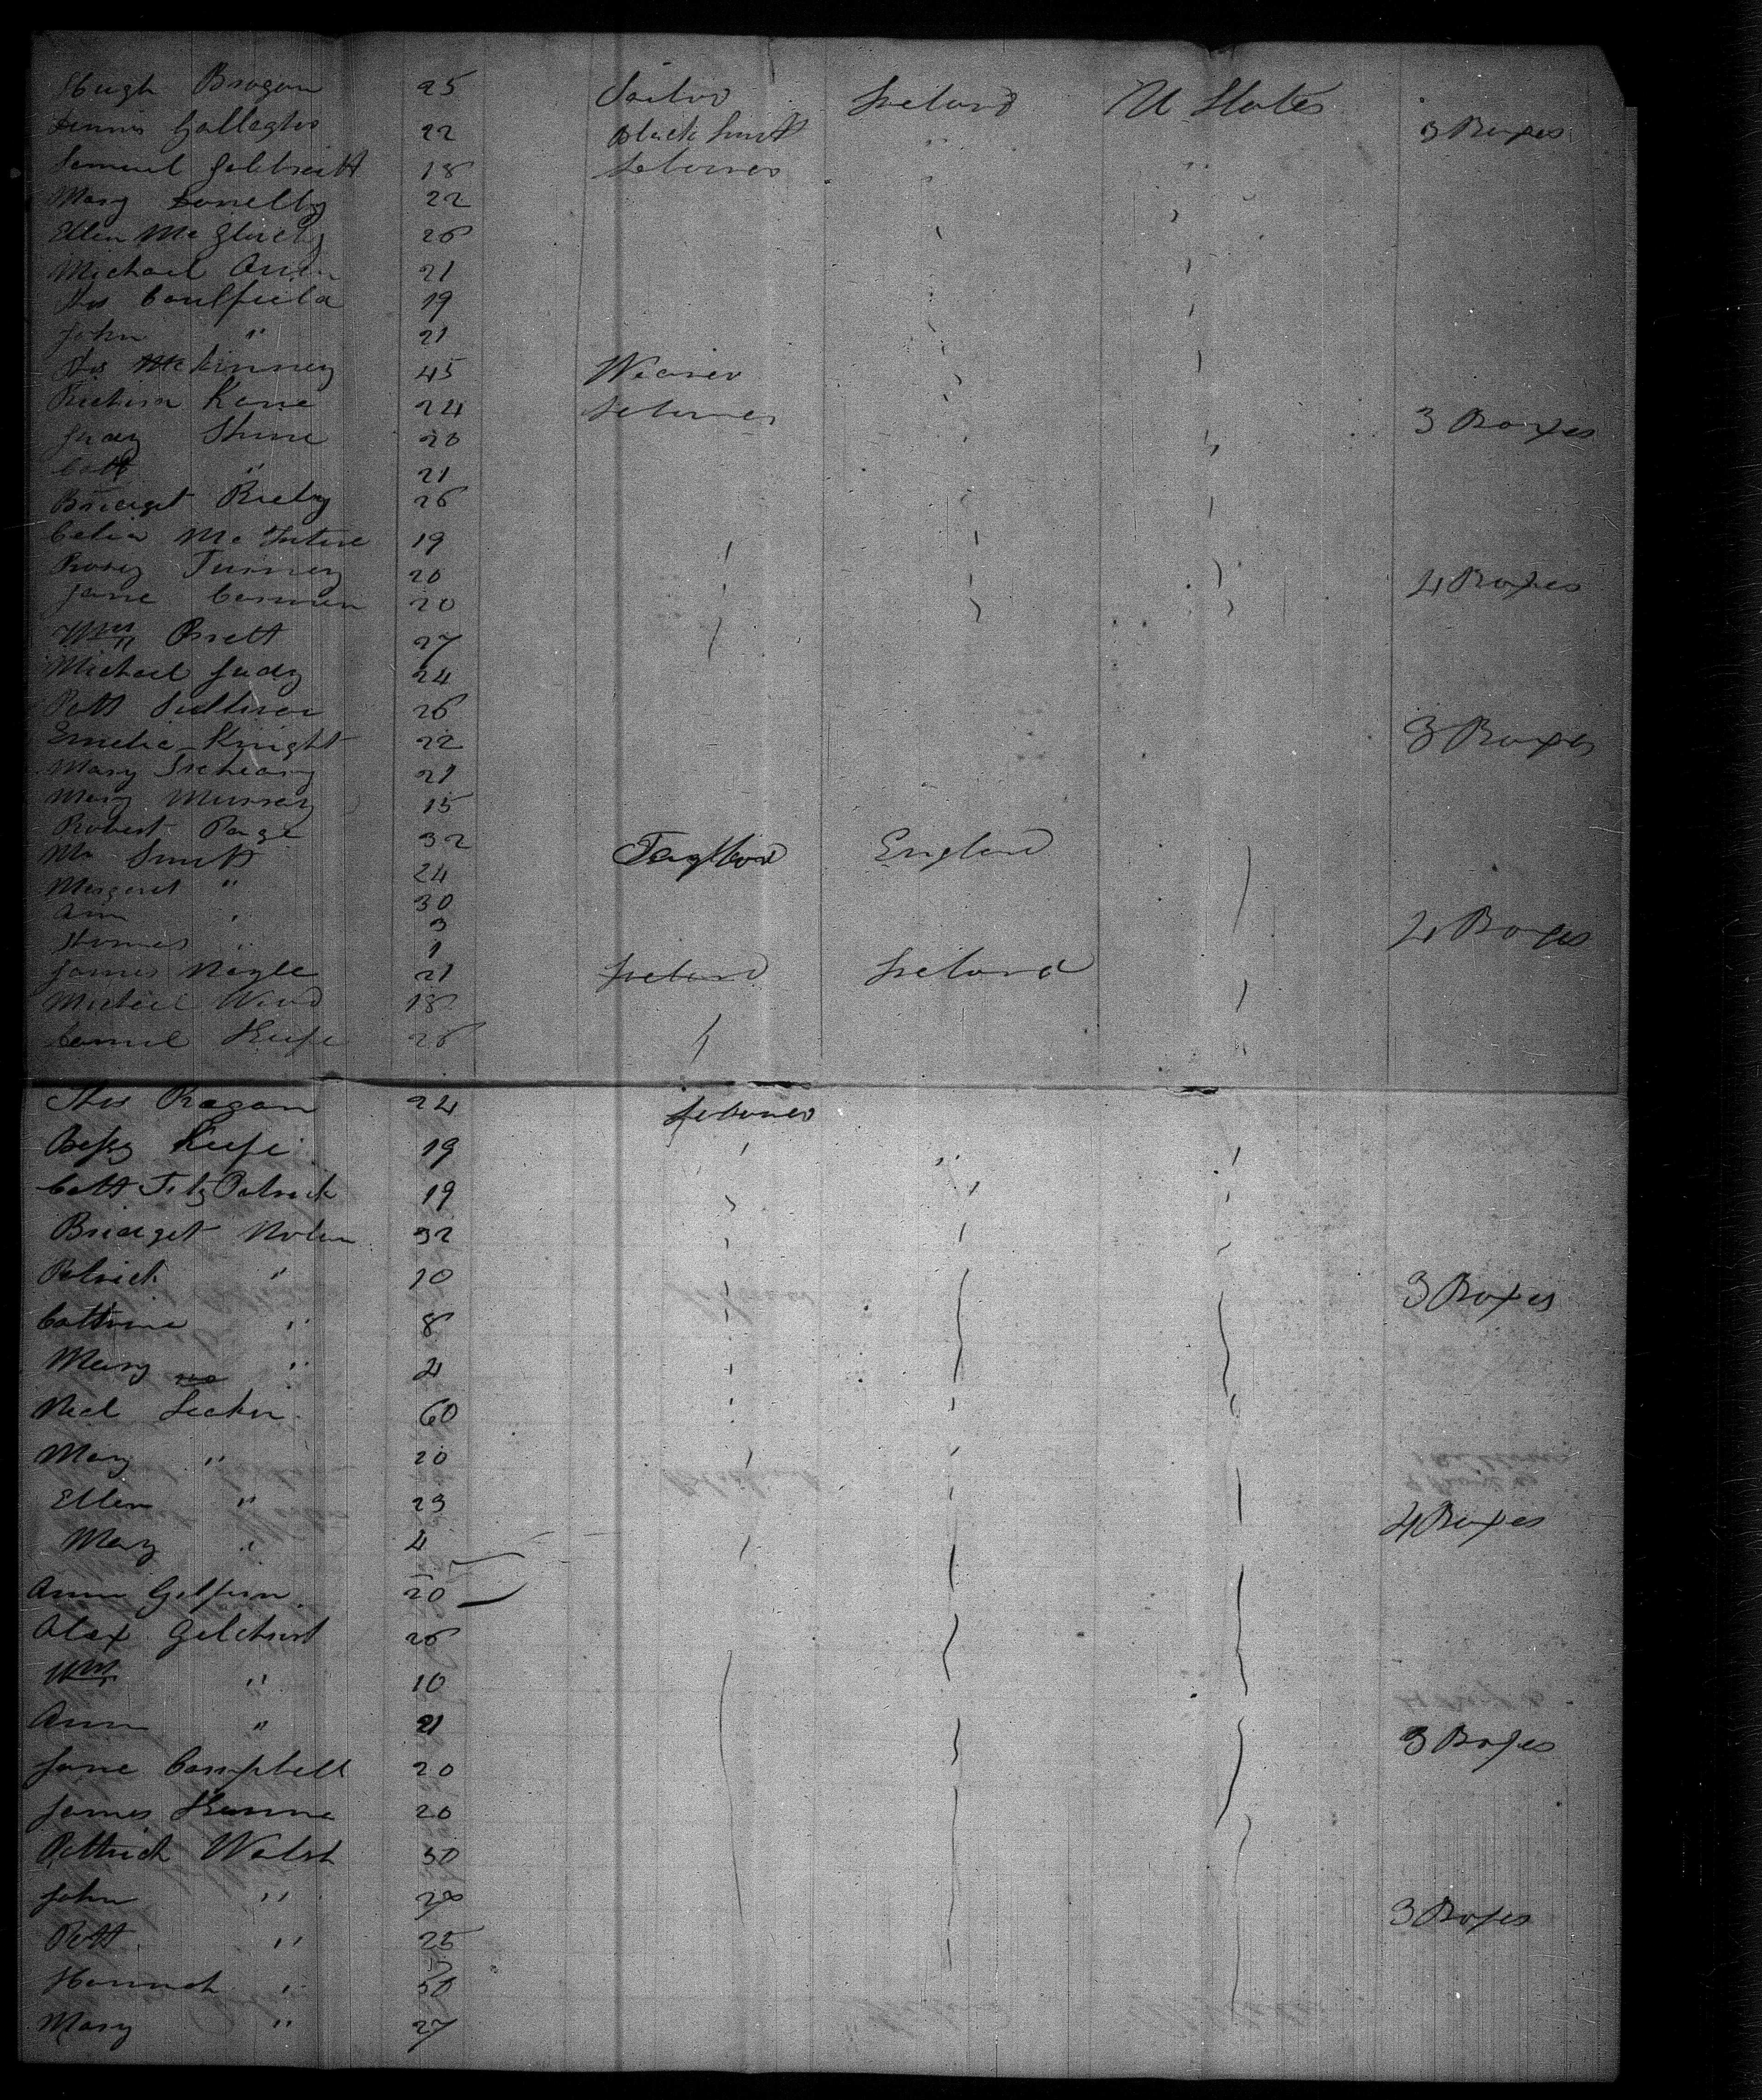 Hugh Brogan 25 Sailor Ireland U States
Dennis Gallagher 22 Black Smith " " 3 Boxes
Samuel Galbreath 18 Laborer
Mary Donelly 22
Ellen Mc 26
Michael 21
Thos Caulfield 19
John " 21
Thos McKinney 45 Weaver
Kane 24 Laborer 3 Boxes
Judy Shine 20
Cath " 21
Bridget Riely 26
Celia McIntire 19
Rosey Turney 20 4 Boxes
Jane 20
Wm Brett 27
Michael Judy 24
Patt Sullivan 26
Emelie Knight 22 3 Boxes
Mary 21
Mary Murray 15
Robert Page 32 England
Mr Smith 24
Margaret " 30
Ann " 3 4 Boxes
Thomas " 1
James Nagle 21 Ireland Ireland
Michael Ward 18
Keefe 26
Thos Ragan 24 Laborer
Bessy Keefe 19 "
Cath Fitz Patrick 19
Bridget Nolan 32
Patrick " 10 3 Boxes
Cathrine " 8
Mary " 4
Neal 60
Mary " 20
Ellen " 23 4 Boxes
Mary " 4
Ann Gilpin 20
Alex Gilchrist 26
Wm " 10
Ann " 21 3 Boxes
Jane Campbell 20
James 20
Pattrick Walsh 50
John " 28 3 Boxes
Patt " 25
Hannah " 50
Mary " 27